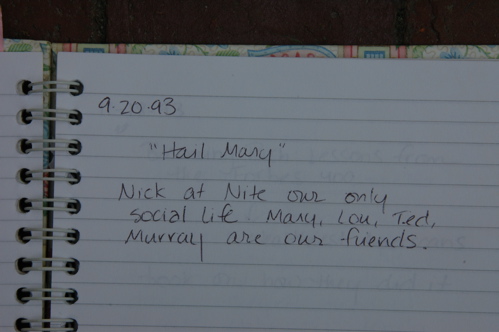 9.20.93
"Hail Mary"
Nick at Nite our only
social life. Mary, Lou, Ted,
Murray are our friends.